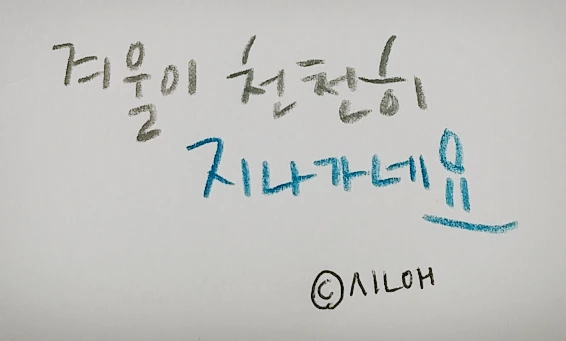 겨울이 천천히
지나가네요
©시내